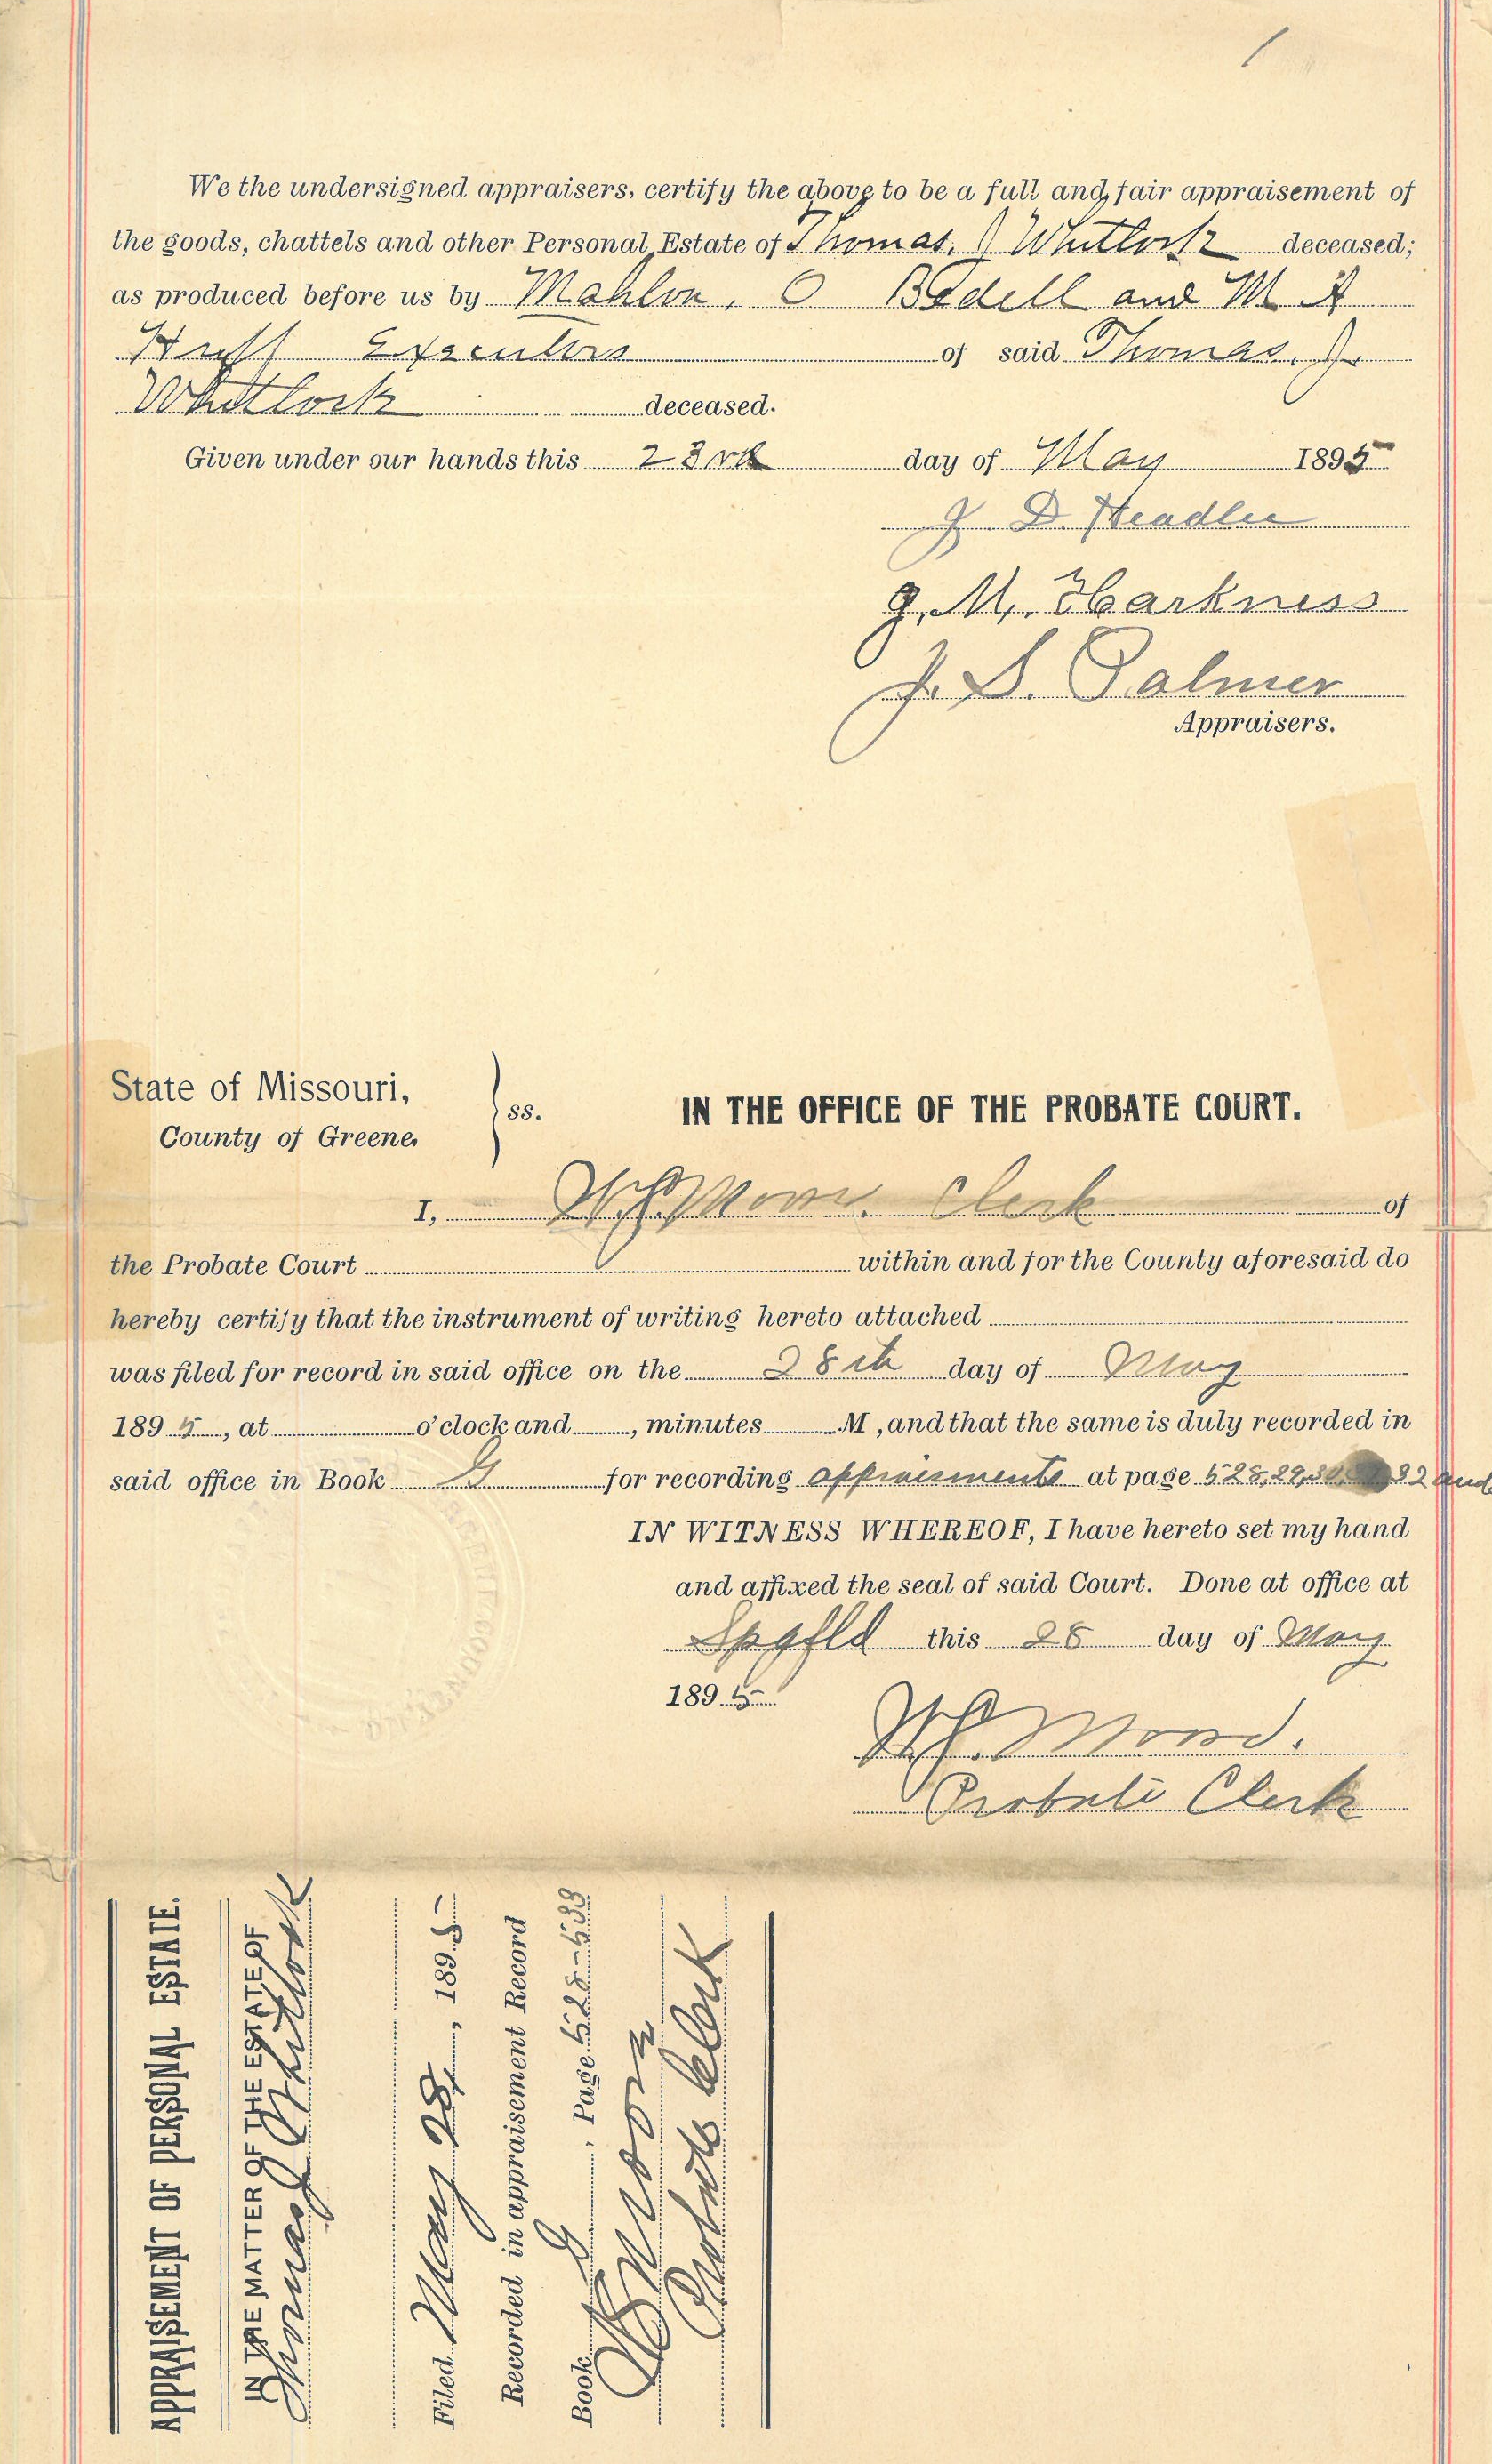 We the undersigned appraisers, certify the above to be a full and fair appraisement of
the goods, chattels and other Personal Estate of Thomas. J Whitlock deceased;
as produced before us by Mahlon. O Bedell and M A
Huff Executors of said Thomas. J.
Whitlock deceased.
Given under our hands this 23rd day of May 1895
J. D. Headlee
J. M. Harkness
J. S. Palmer
Appraisers.
State of Missouri,
County of Greene,
ss.
IN THE OFFICE OF THE PROBATE COURT.
I, Clerk of
the Probate Court within and for the County aforesaid do
hereby certify that the instrument of writing hereto attached
was filed for record in said office on the 28th day of May
1895, at o'clock and , minutes M , and that the same is duly recorded in
said office in Book G for recording appraisments at page 528, 29, 30, 32 and
IN WITNESS WHEREOF, I have hereto set my hand
and affixed the seal of said Court. Done at office at
Spgfld this 28 day of May
1895
Probate Clerk
APPRAISEMENT OF PERSONAL ESTATE.
IN THE MATTER OF THE ESTATE OF
Thomas J Whitlock
Filed May 28, 1895
Recorded in appraisement Record
Book G, Page 528-533
Probate Clerk